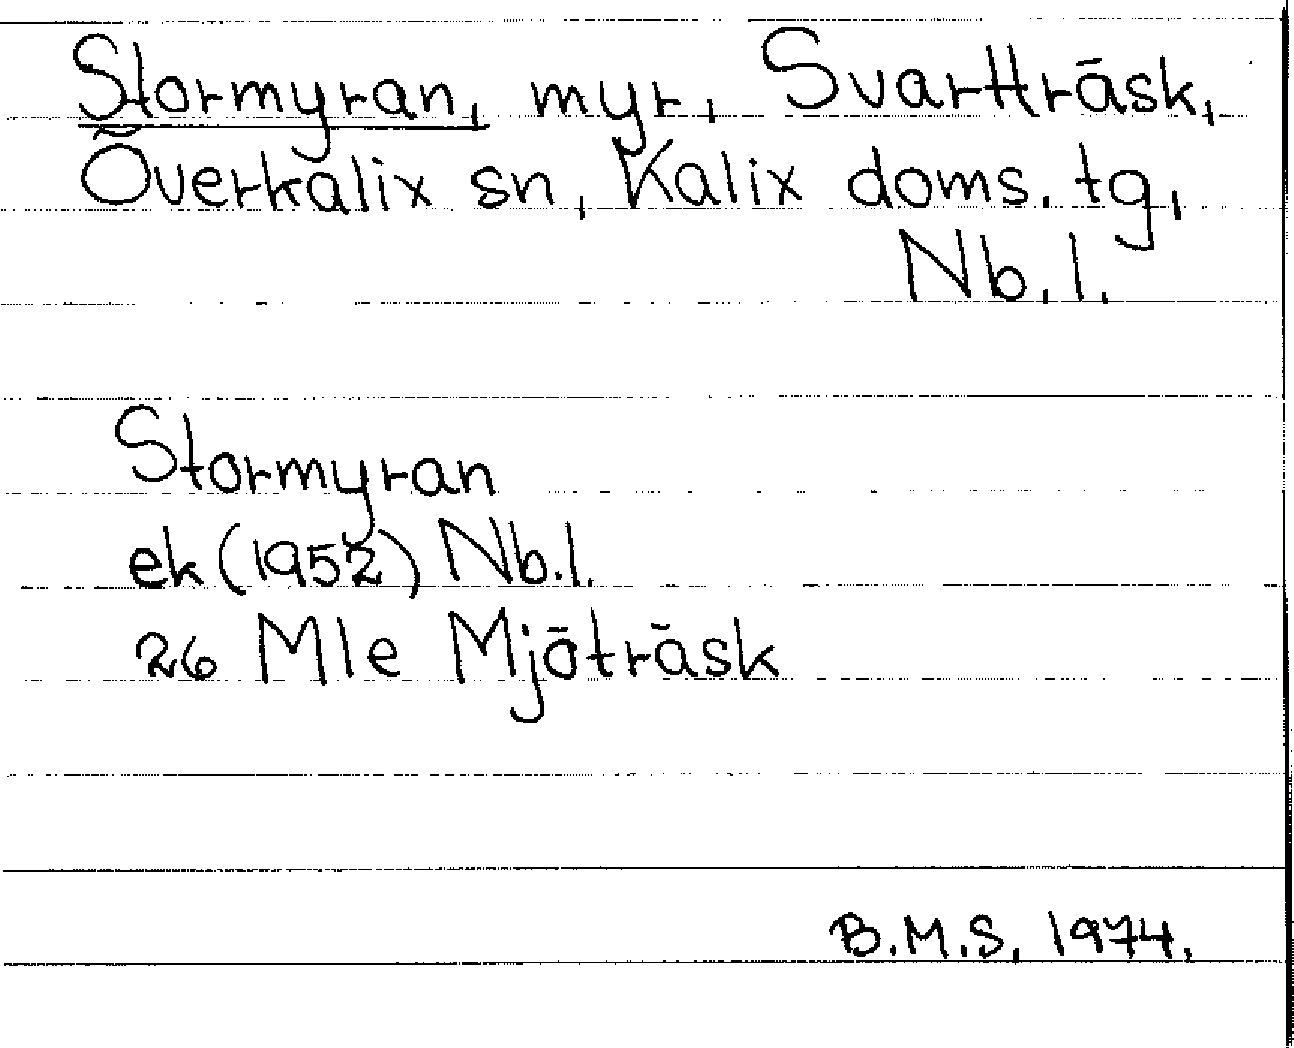 Stormyran, myr, Svartträsk,
Överkalix sn, Kalix doms. tg,
Nb. l.
Stormyran
ek (1952) Nb. l.
26 Mle Mjöträsk
B.M.S. 1974.